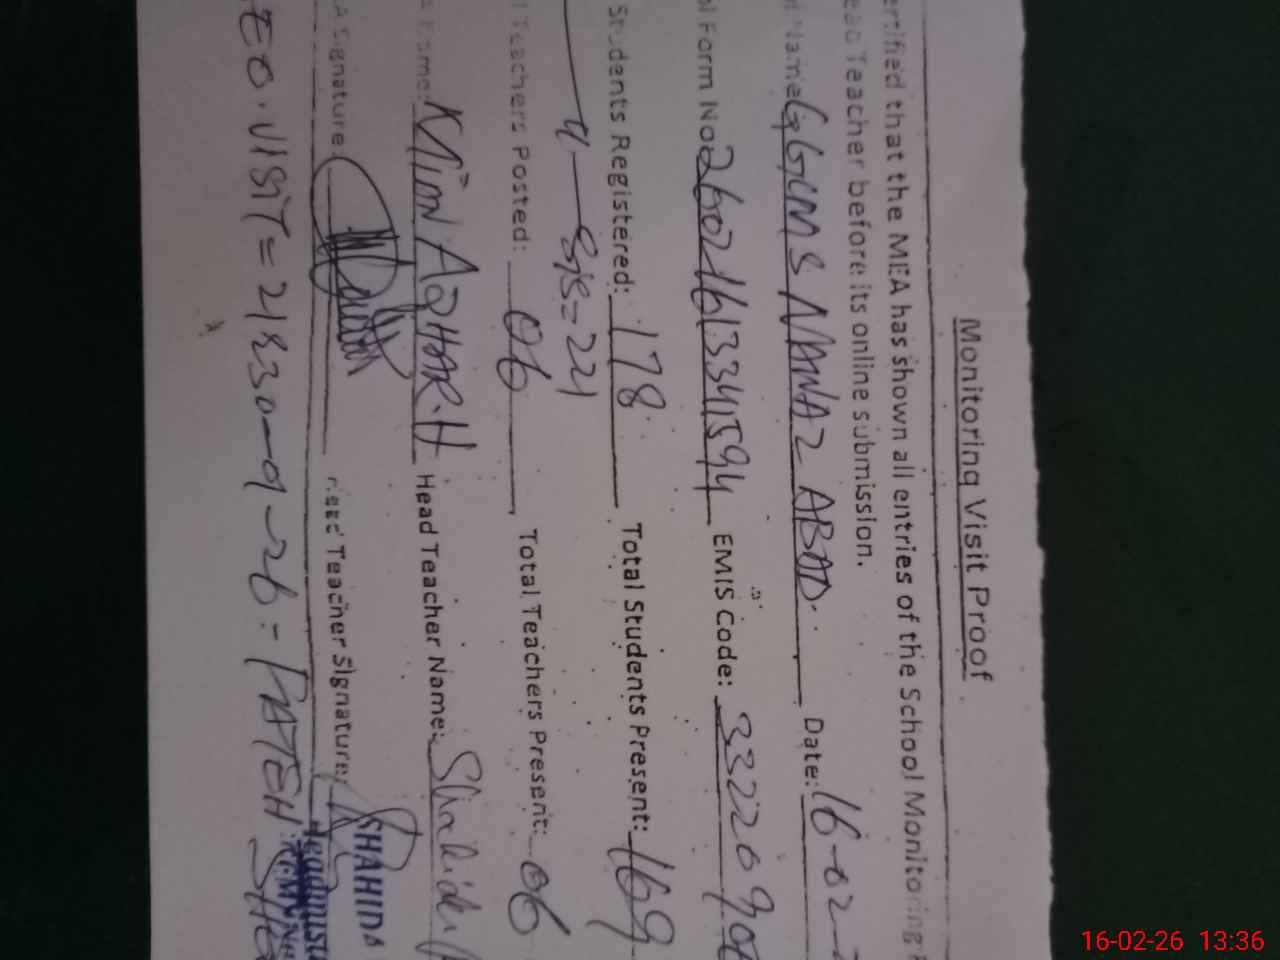 Monitoring Visit Proof
ertified that the MEA has shown all entries of the School Monitoring
ead Teacher before its online submission.
Name GGCMS NAWAZ ABAD. Date: 16-02-
ol Form No: 26021613341594 EMIS Code: 332209
Students Registered: 178 Total Students Present: 169
4-815=221
l Teachers Posted: 06 Total Teachers Present: 06
Name: Mian AQHAR.H Head Teacher Name: Shahida
A Signature: Head Teacher Signature:
SHAHIDA
EO. VISIT = 21830-9-26 = FATEH
16-02-26 13:36